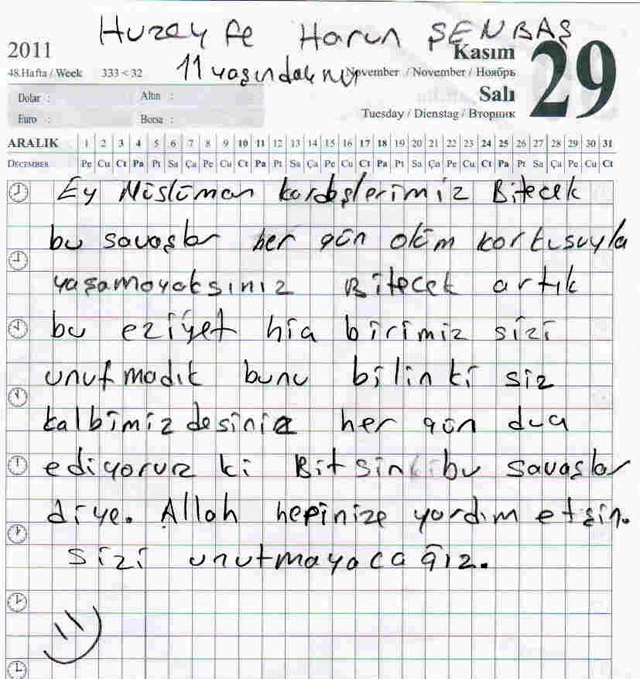 Huzeyfe Harun ŞENBAŞ
2011
Kasım
29
11 yaşındakinı
48.Hafta / Week 333<32
November / November / Ноябрь
Dolar : Altın :
Salı
Euro : Borsa :
Tuesday / Dienstag / Вторник
ARALIK 1 2 3 4 5 6 7 8 9 10 11 12 13 14 15 16 17 18 19 20 21 22 23 24 25 26 27 28 29 30 31
DECEMBER Pe Cu Ct Pa Pt Sa Ça Pe Cu Ct Pa Pt Sa Ça Pe Cu Ct Pa Pt Sa Ça Pe Cu Ct Pa Pt Sa Ça Pe Cu Ct
Ey Müslüman kardeşlerimiz Bitecek
bu savaşlar her gün ölüm korkusuyla
yaşamayaksınız Bitecek artık
bu eziyet hia birimiz sizi
unutmadık bunu bilin ki siz
kalbimizdesiniz her gün dua
ediyoruz ki Bitsin bu savaşlar
diye. Allah hepinize yardım etsin.
sizi unutmayacağız.